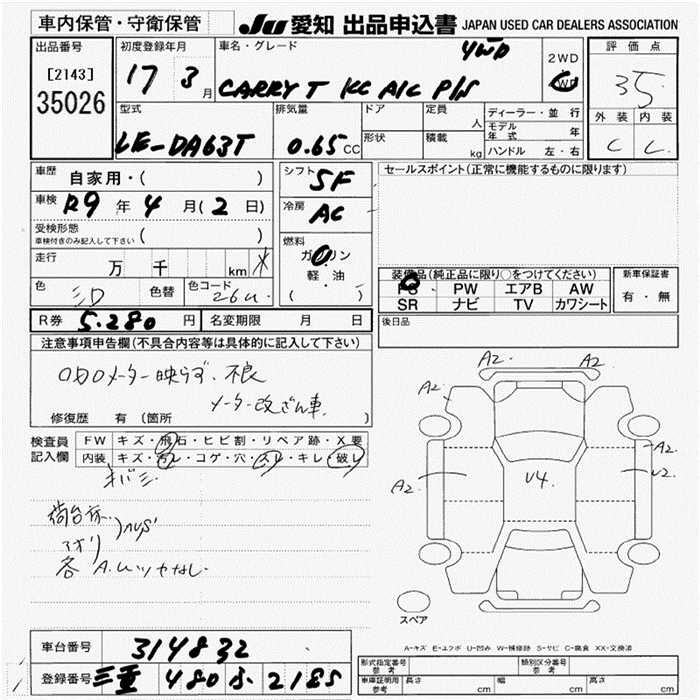 車内保管・守衛保管 JU 愛知 出品申込書 JAPAN USED CAR DEALERS ASSOCIATION
出品番号 [2143] 35026
初度登録年月 17 3月
車名・グレード 4WD
CARRY T KC A/C P/S
2WD 4WD
評価点 35
外装 内装
C C
型式 LE-DA63T
排気量 0.65 CC
ドア 形状
定員 人 積載 kg
ディーラー・並行
モデル年式 年
ハンドル 左・右
車歴 自家用・( )
車検 R9 年 4 月(2 日)
受検形態 車検付きのみ記入して下さい ( )
走行 万 千 km
色 色替 色コード 26U
シフト 5F
冷房 AC
燃料 ガソリン 軽・油 ( )
セールスポイント(正常に機能するものに限ります)
装備品(純正品に限り○をつけてください)
PS PW エアB AW
SR ナビ TV カワシート
新車保証書 有・無
R券 5.280 円 名変期限 月 日
後日品
注意事項申告欄(不具合内容等は具体的に記入して下さい)
ODOメーター映らず、不良
メーター改ざん車
修復歴 有 (箇所 )
検査員記入欄
FW キズ・飛石・ヒビ割・リペア跡・X要
内装 キズ・汚レ・コゲ・穴・スレ・キレ・破レ
キバミ
荷台床
アオリ
各
A2. A2.
A2.
A2.
A2. U4. U2.
スペア
A-キズ E-エクボ U-凹み W-補修跡 S-サビ C-腐食 XX-交換済
車台番号 314832
登録番号 三重 480 る 2185
形式指定番号 参考 類別区分番号 参考
車庫証明用 参考 長さ cm 幅 cm 高さ cm